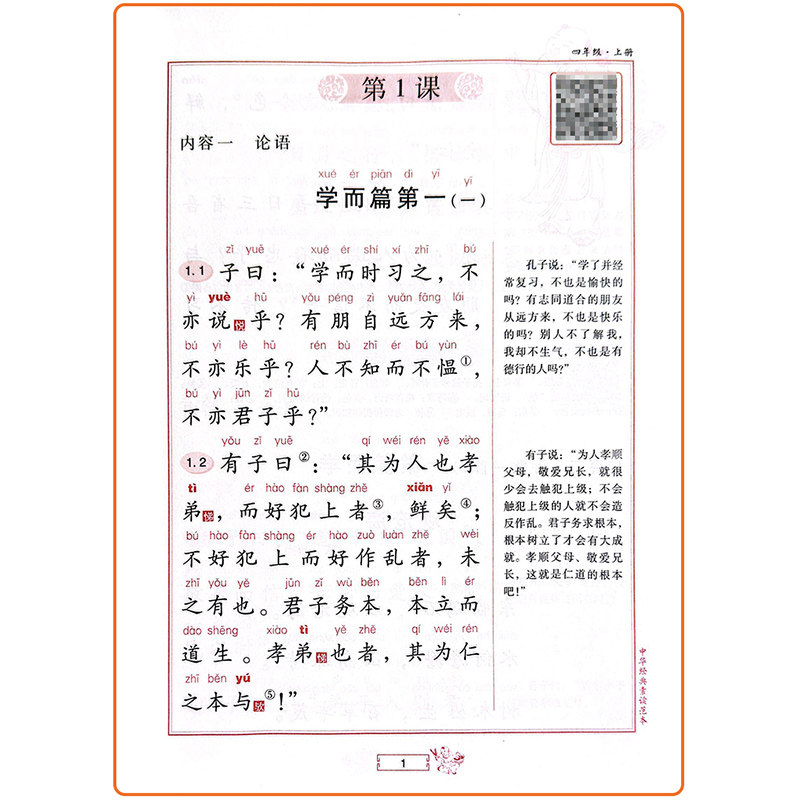 四年级·上册
第1课
内容一 论语
xué ér piān dì yī yī
学而篇第一(一)
zǐ yuē xué ér shí xí zhī bú
1.1 子曰：“学而时习之，不
yì yuè hū yǒu péng zì yuǎn fāng lái
亦说悦乎？有朋自远方来，
bú yì lè hū rén bù zhī ér bú yùn
不亦乐乎？人不知而不愠①，
bú yì jūn zǐ hū
不亦君子乎？”
孔子说：“学了并经
常复习，不也是愉快的
吗？有志同道合的朋友
从远方来，不也是快乐
的吗？别人不了解我，
我却不生气，不也是有
德行的人吗？”
yǒu zǐ yuē qí wéi rén yě xiào
1.2 有子曰②：“其为人也孝
tì ér hào fàn shàng zhě xiǎn yǐ
弟悌，而好犯上者③，鲜矣④；
bú hào fàn shàng ér hào zuò luàn zhě wèi
不好犯上而好作乱者，未
zhī yǒu yě jūn zǐ wù běn běn lì ér
之有也。君子务本，本立而
dào shēng xiào tì yě zhě qí wéi rén
道生。孝弟悌也者，其为仁
zhī běn yú
之本与欤⑤！”
有子说：“为人孝顺
父母，敬爱兄长，就很
少会去触犯上级；不会
触犯上级的人就不会造
反作乱。君子务求根本，
根本树立了才会有大成
就。孝顺父母、敬爱兄
长，这就是仁道的根本
吧！”
中华经典素读范本
1